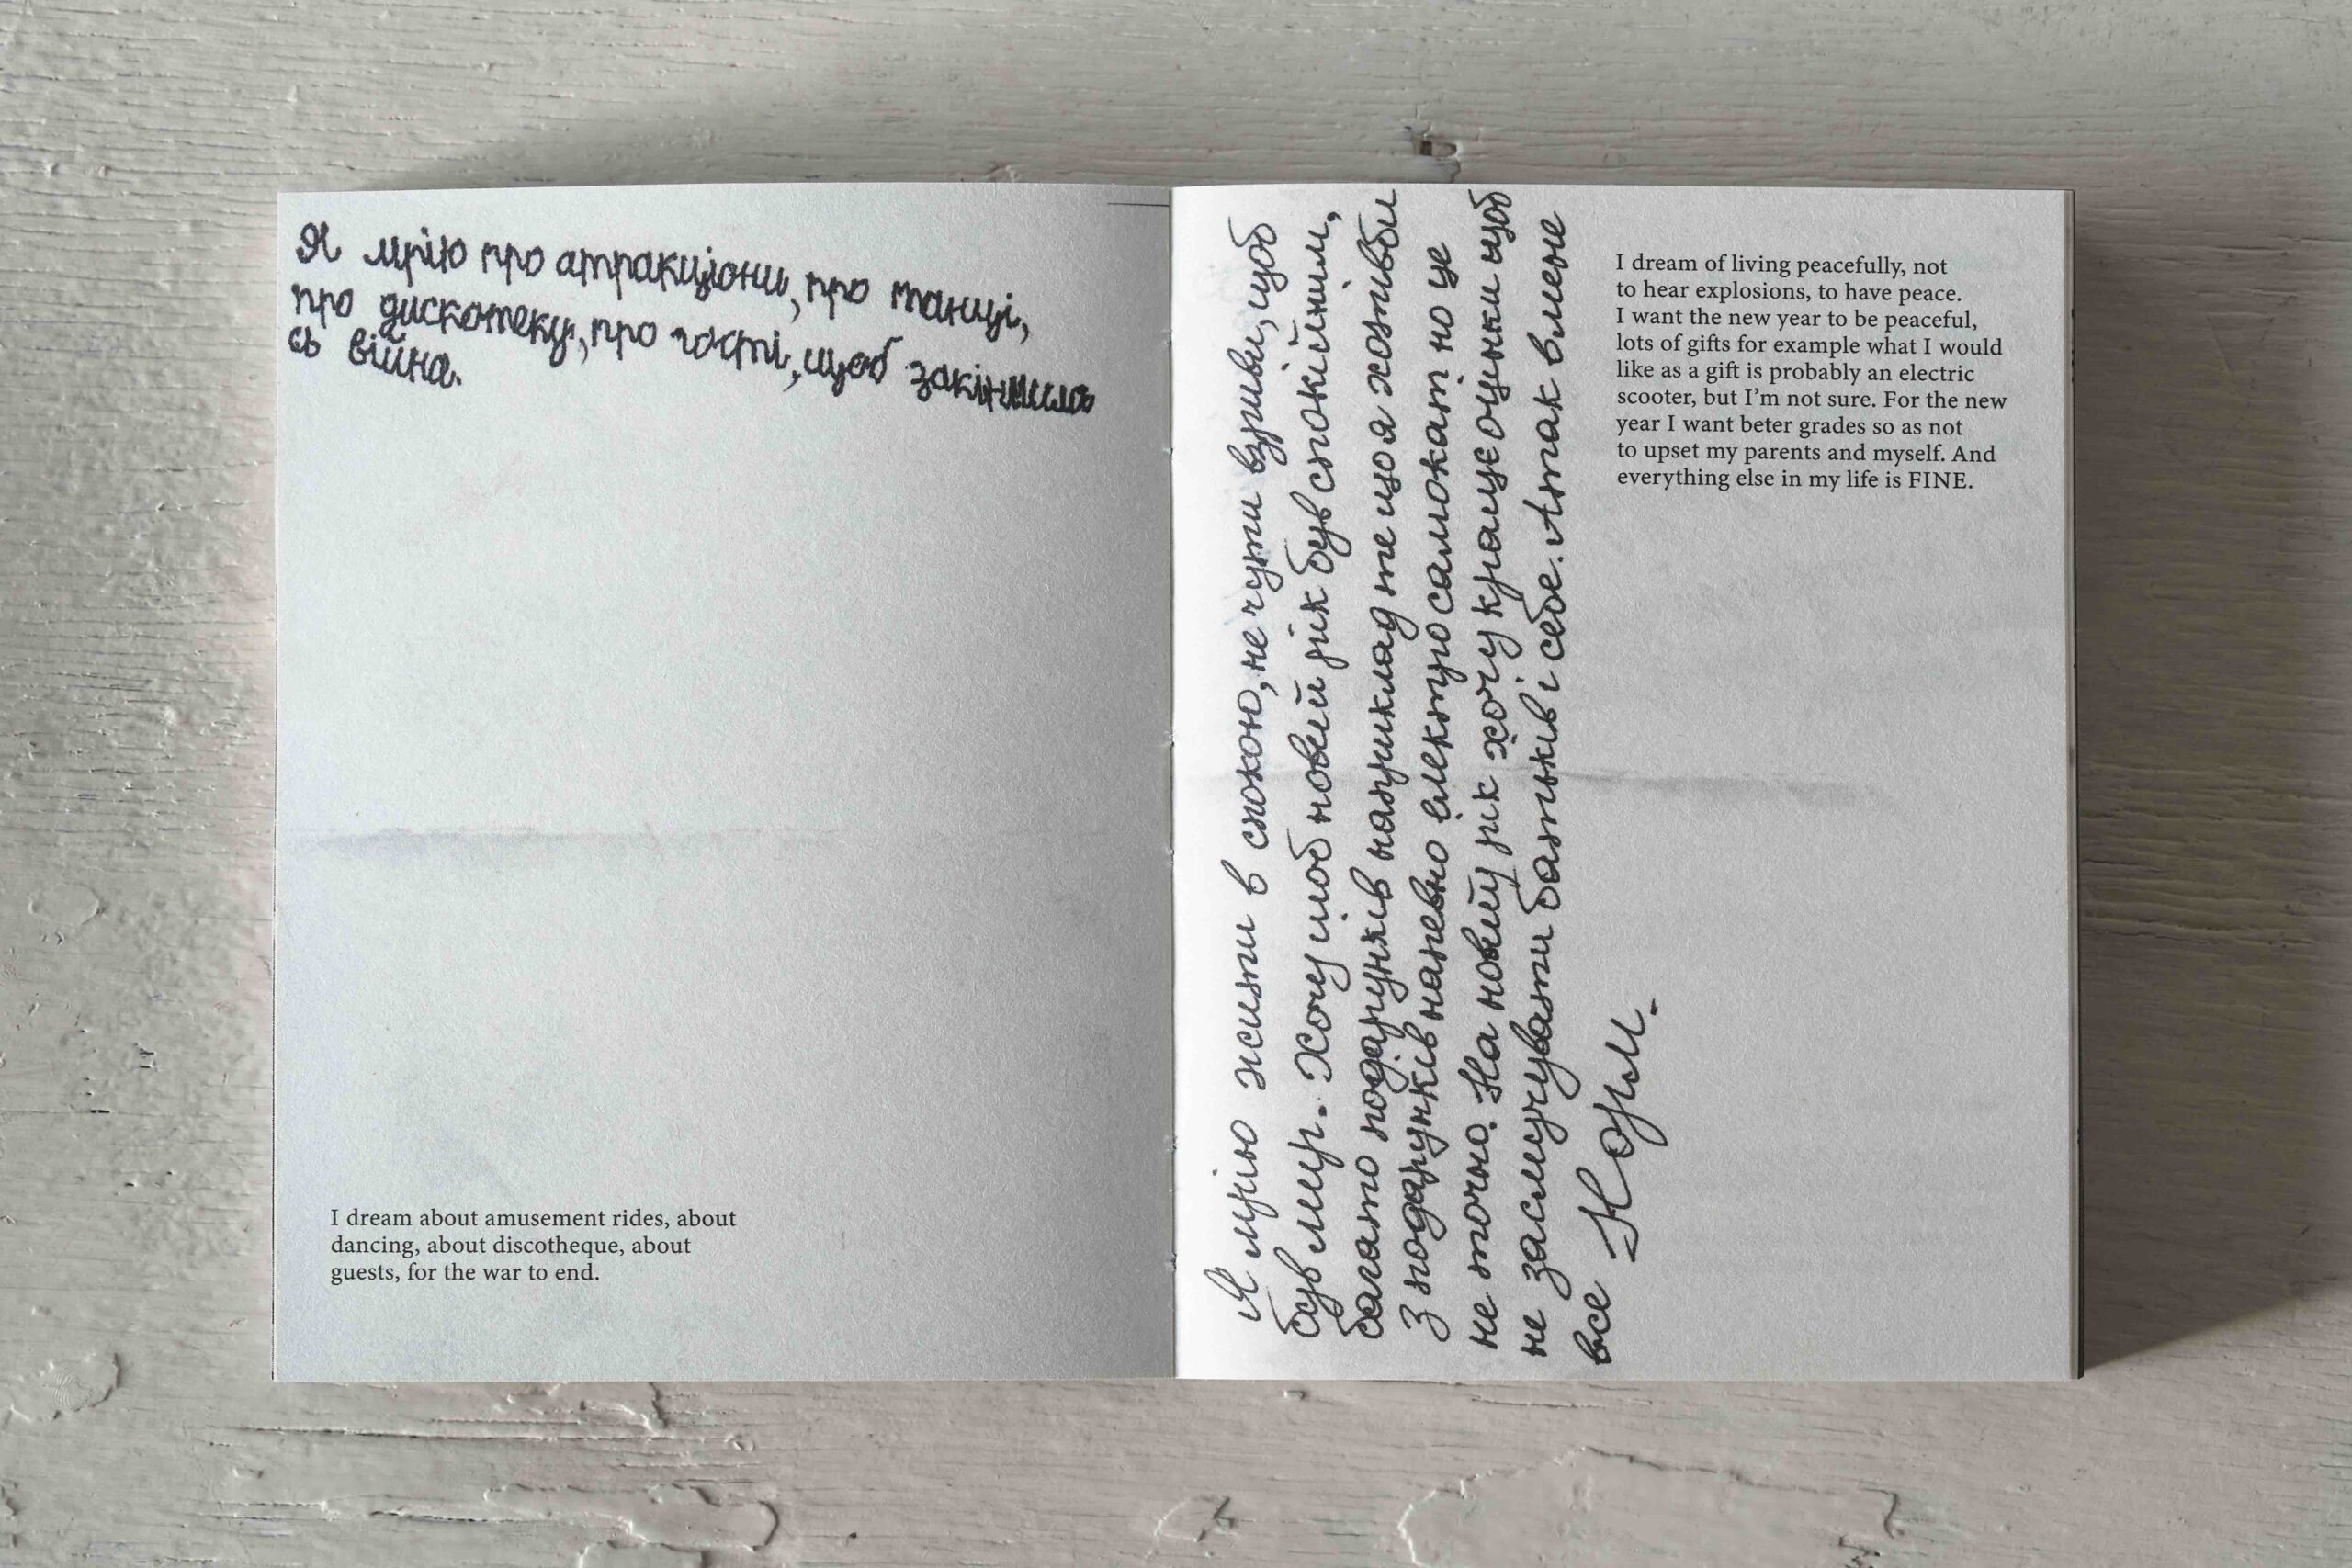 Я мрію про атракціони, про танці,
про дискотеку, про гості, щоб закінчила
сь війна.
I dream about amusement rides, about
dancing, about discotheque, about
guests, for the war to end.
Я мрію жити в спокою, не чути взриви, щоб
був мир. Хочу шоб новий рік був спокійним,
багато подарунків наприклад те що я хотів би
з подарунків напевно електро самокат но це
не точно. На новий рік хочу кращє оцінки щоб
не засмучувати батьків і себе. А так в мене
все Норм.
I dream of living peacefully, not
to hear explosions, to have peace.
I want the new year to be peaceful,
lots of gifts for example what I would
like as a gift is probably an electric
scooter, but I’m not sure. For the new
year I want beter grades so as not
to upset my parents and myself. And
everything else in my life is FINE.